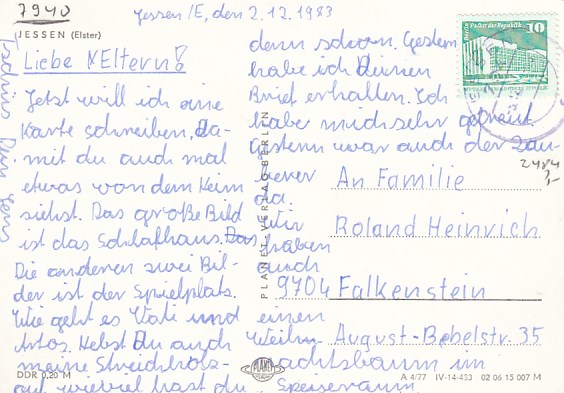 7940
Jessen/E, den 2.12.1983
JESSEN (Elster)
Liebe Eltern!
Jetzt will ich eine
Karte schreiben, Da-
mit du auch mal
etwas von dem Heim
siehst. Das große Bild
ist das Schlafhaus. Das
Die anderen zwei Bil-
der ist der Spielplatz.
Wie geht es Vati und
Artos. Hebst Du auch
meine Streichholz-
auf wieviel hast du
Tschüss Dein Jens
denn schon. Gestern
habe ich Deinen
Brief erhallen. Ich
habe mich sehr gefreut.
Gestern war auch der Zau-
berer
da.
Wir
haben
auch
einen
Weihn-
achtsbaum im
Speiseraum.
Berlin, Palast der Republik 10
2484
An Familie
Roland Heinrich
9704 Falkenstein
August-Bebelstr. 35
PLANET-VERLAG BERLIN
PLANET
DDR 0,20 M
A 4/77 IV-14-483 02 06 15 007 M